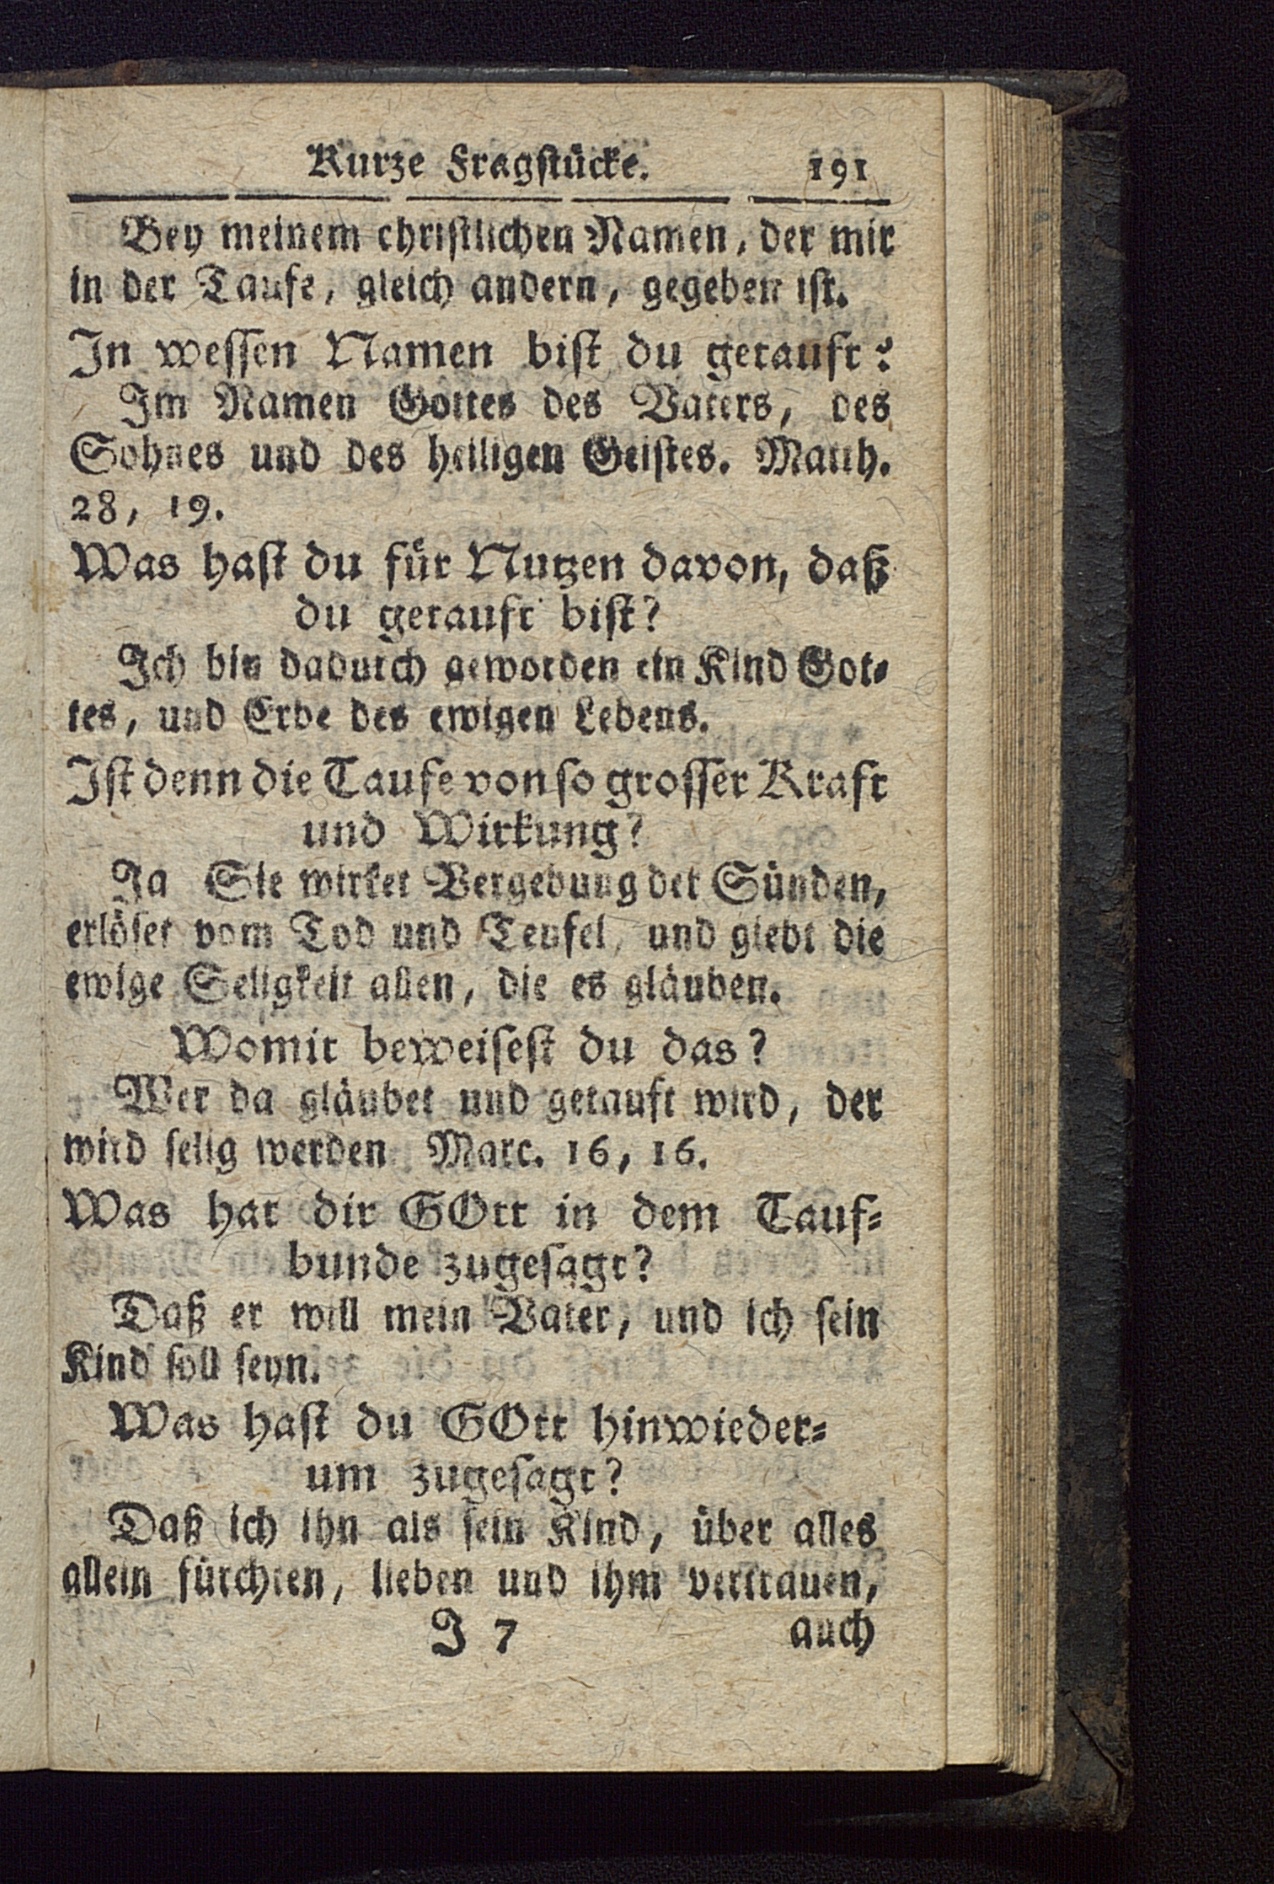 Kurze Fragstücke. 191
Bey meinem christlichen Namen, der mir
in der Taufe, gleich andern, gegeben ist.
In wessen Namen bist du getauft?
Im Namen Gottes des Vaters, des
Sohnes und des heiligen Geistes. Matth.
28, 19.
Was hast du für Nutzen davon, daß
du getauft bist?
Ich bin dadurch geworden ein Kind Got-
tes, und Erbe des ewigen Lebens.
Ist denn die Taufe von so grosser Kraft
und Wirkung?
Ja Sie wirket Vergebung der Sünden,
erlöset vom Tod und Teufel, und giebt die
ewige Seligkeit allen, die es gläuben.
Womit beweisest du das?
Wer da gläubet und getauft wird, der
wird selig werden Marc. 16, 16.
Was hat dir GOtt in dem Tauf-
bunde zugesagt?
Daß er will mein Vater, und ich sein
Kind soll seyn.
Was hast du GOtt hinwieder-
um zugesagt?
Daß ich ihn als sein Kind, über alles
allein fürchten, lieben und ihm vertrauen,
J 7 auch